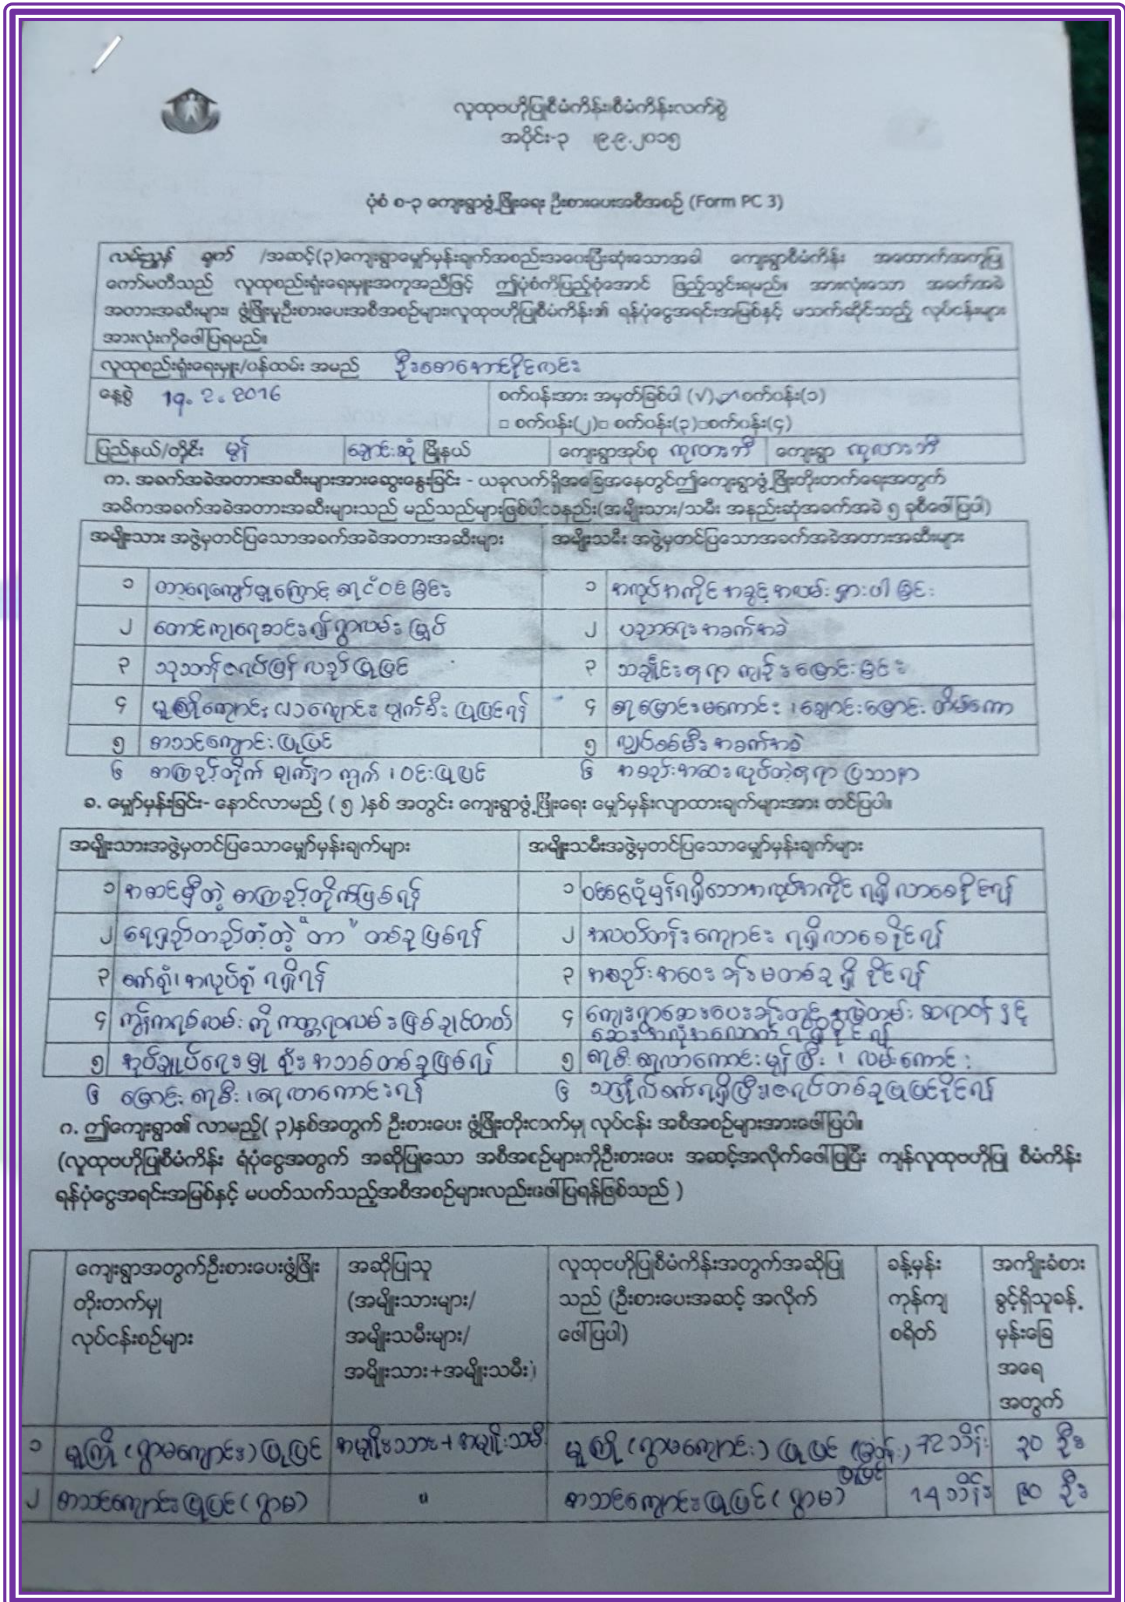 လူထုဗဟိုပြုစီမံကိန်း၊စီမံကိန်းလက်စွဲ
အပိုင်း-၃ ၊၉.၉.၂၀၁၅
ပုံစံ စ-၃ ကျေးရွာဖွံ့ဖြိုးရေး ဦးစားပေးအစီအစဉ် (Form PC 3)
လမ်းညွှန် ချက် /အဆင့်(၃)ကျေးရွာမျှော်မှန်းချက်အစည်းအဝေးပြီးဆုံးသောအခါ ကျေးရွာစီမံကိန်း အထောက်အကူပြု
ကော်မတီသည် လူထုစည်းရုံးရေးမှူးအကူအညီဖြင့် ဤပုံစံကိုပြည့်စုံအောင် ဖြည့်သွင်းရမည်။ အားလုံးသော အခက်အခဲ
အတားအဆီးများ၊ ဖွံ့ဖြိုးမှုဦးစားပေးအစီအစဉ်များ၊လူထုဗဟိုပြုစီမံကိန်း၏ ရန်ပုံငွေအရင်းအမြစ်နှင့် မသက်ဆိုင်သည့် လုပ်ငန်းများ
အားလုံးကိုဖေါ်ပြရမည်။
လူထုစည်းရုံးရေးမှူး/ဝန်ထမ်း အမည် ဦးစောနောင်ဝိုင်းလင်း
နေ့စွဲ 19.2.2016 စက်ဝန်းအား အမှတ်ခြစ်ပါ (√) စက်ဝန်း(၁)
□ စက်ဝန်း(၂)□ စက်ဝန်း(၃)□စက်ဝန်း(၄)
ပြည်နယ်/တိုင်း မွန် ချောင်းဆုံ မြို့နယ် ကျေးရွာအုပ်စု ကုလားဘီ ကျေးရွာ ကုလားဘီ
က. အခက်အခဲအတားအဆီးများအားဆွေးနွေးခြင်း - ယခုလက်ရှိအခြေအနေတွင်ဤကျေးရွာဖွံ့ဖြိုးတိုးတက်ရေးအတွက်
အဓိကအခက်အခဲအတားအဆီးများသည် မည်သည်များဖြစ်ပါသနည်း(အမျိုးသား/သမီး အနည်းဆုံအခက်အခဲ ၅ ခုစီဖေါ်ပြပါ)
အမျိုးသား အဖွဲ့မှတင်ပြသောအခက်အခဲအတားအဆီးများ အမျိုးသမီး အဖွဲ့မှတင်ပြသောအခက်အခဲအတားအဆီးများ
၁ တာရေကျော်မှုကြောင့် ရေငံဝင်ခြင်း ၁ အလုပ်အကိုင် အခွင့်အလမ်း ရှားပါခြင်း
၂ တောင်ကျရေဆင်း၍ရွာလမ်းမြှုပ် ၂ ပညာရေးအခက်အခဲ
၃ သုသာန်ဇရပ်ပြန်လည်ပြုပြင် ၃ သချိုင်းနေရာ ကျဉ်းမြောင်းခြင်း
၄ မူကြိုကျောင်း၊ မူလကျောင်း ပျက်စီး ပြုပြင်ရန် ၄ ရေမြောင်းမကောင်း၊ ချောင်းမြောင်း တိမ်ကော
၅ စာသင်ကျောင်းပြုပြင် ၅ လျှပ်စစ်မီးအခက်အခဲ
၆ စာကြည့်တိုက် မျက်နှာကျက်၊ ဝင်းပြုပြင် ၆ အစည်းအဝေးလုပ်တဲ့နေရာ ပြဿနာ
ခ. မျှော်မှန်းခြင်း- နောင်လာမည့် (၅)နှစ် အတွင်း ကျေးရွာဖွံ့ဖြိုးရေး မျှော်မှန်းလျာထားချက်များအား တင်ပြပါ။
အမျိုးသားအဖွဲ့မှတင်ပြသောမျှော်မှန်းချက်များ အမျိုးသမီးအဖွဲ့မှတင်ပြသောမျှော်မှန်းချက်များ
၁ အဆင့်မှီတဲ့ စာကြည့်တိုက်ဖြစ်ရန် ၁ ဝင်ငွေပုံမှန်ရရှိသောအလုပ်အကိုင် ရရှိလာစေနိုင်ရန်
၂ ရေရှည်တည်တံ့တဲ့ "တာ" တစ်ခုဖြစ်ရန် ၂ အလယ်တန်းကျောင်း ရရှိလာစေနိုင်ရန်
၃ စက်ရုံ၊ အလုပ်ရုံ ရရှိရန် ၃ အစည်းအဝေးခန်းမတစ်ခု ရှိနိုင်ရန်
၄ ကွန်ကရစ်လမ်းကို ကတ္တရာလမ်းဖြစ်ချင်တတ် ၄ ကျေးရွာဆေးပေးခန်းတွင် အမြဲတမ်း ဆရာဝန်နှင့်
ဆေးအလုံအလောက်ရရှိနိုင်ရန်
၅ အုပ်ချုပ်ရေးမှူးရုံးအသစ်တစ်ခုဖြစ်ရန် ၅ ရေမီးရေလာကောင်းမွန်ပြီး၊ လမ်းကောင်း
၆ မြောင်းရေစီး၊ ရေလာကောင်းရန် ၆ သင်္ဂြိုလ်စက်ရရှိပြီး၊ဇရပ်တစ်ခုပြုပြင်နိုင်ရန်
ဂ. ဤကျေးရွာ၏ လာမည့်(၃)နှစ်အတွက် ဦးစားပေး ဖွံ့ဖြိုးတိုးတက်မှု လုပ်ငန်း အစီအစဉ်များအားဖေါ်ပြပါ။
(လူထုဗဟိုပြုစီမံကိန်း ရံပုံငွေအတွက် အဆိုပြုသော အစီအစဉ်များကိုဦးစားပေး အဆင့်အလိုက်ဖေါ်ပြပြီး ကျန်လူထုဗဟိုပြု စီမံကိန်း
ရန်ပုံငွေအရင်းအမြစ်နှင့် မပတ်သက်သည့်အစီအစဉ်များလည်းဖေါ်ပြရန်ဖြစ်သည် )
ကျေးရွာအတွက်ဦးစားပေးဖွံ့ဖြိုး အဆိုပြုသူ လူထုဗဟိုပြုစီမံကိန်းအတွက်အဆိုပြု ခန့်မှန်း အကျိုးခံစား
တိုးတက်မှု (အမျိုးသားများ/ သည် (ဦးစားပေးအဆင့် အလိုက် ကုန်ကျ ခွင့်ရှိသူခန့်
လုပ်ငန်းစဉ်များ အမျိုးသမီးများ/ ဖေါ်ပြပါ) စရိတ် မှန်းခြေ
အမျိုးသား+အမျိုးသမီး) အရေ
အတွက်
၁ မူကြို (ရွာမကျောင်း) ပြုပြင် အမျိုးသား+အမျိုးသမီး မူကြို (ရွာမကျောင်း) ပြုပြင် 72သိန်း ၃၀ ဦး
၂ စာသင်ကျောင်းပြုပြင် (ရွာမ) " စာသင်ကျောင်းပြုပြင် (ရွာမ) 14သိန်း ၉၀ ဦး